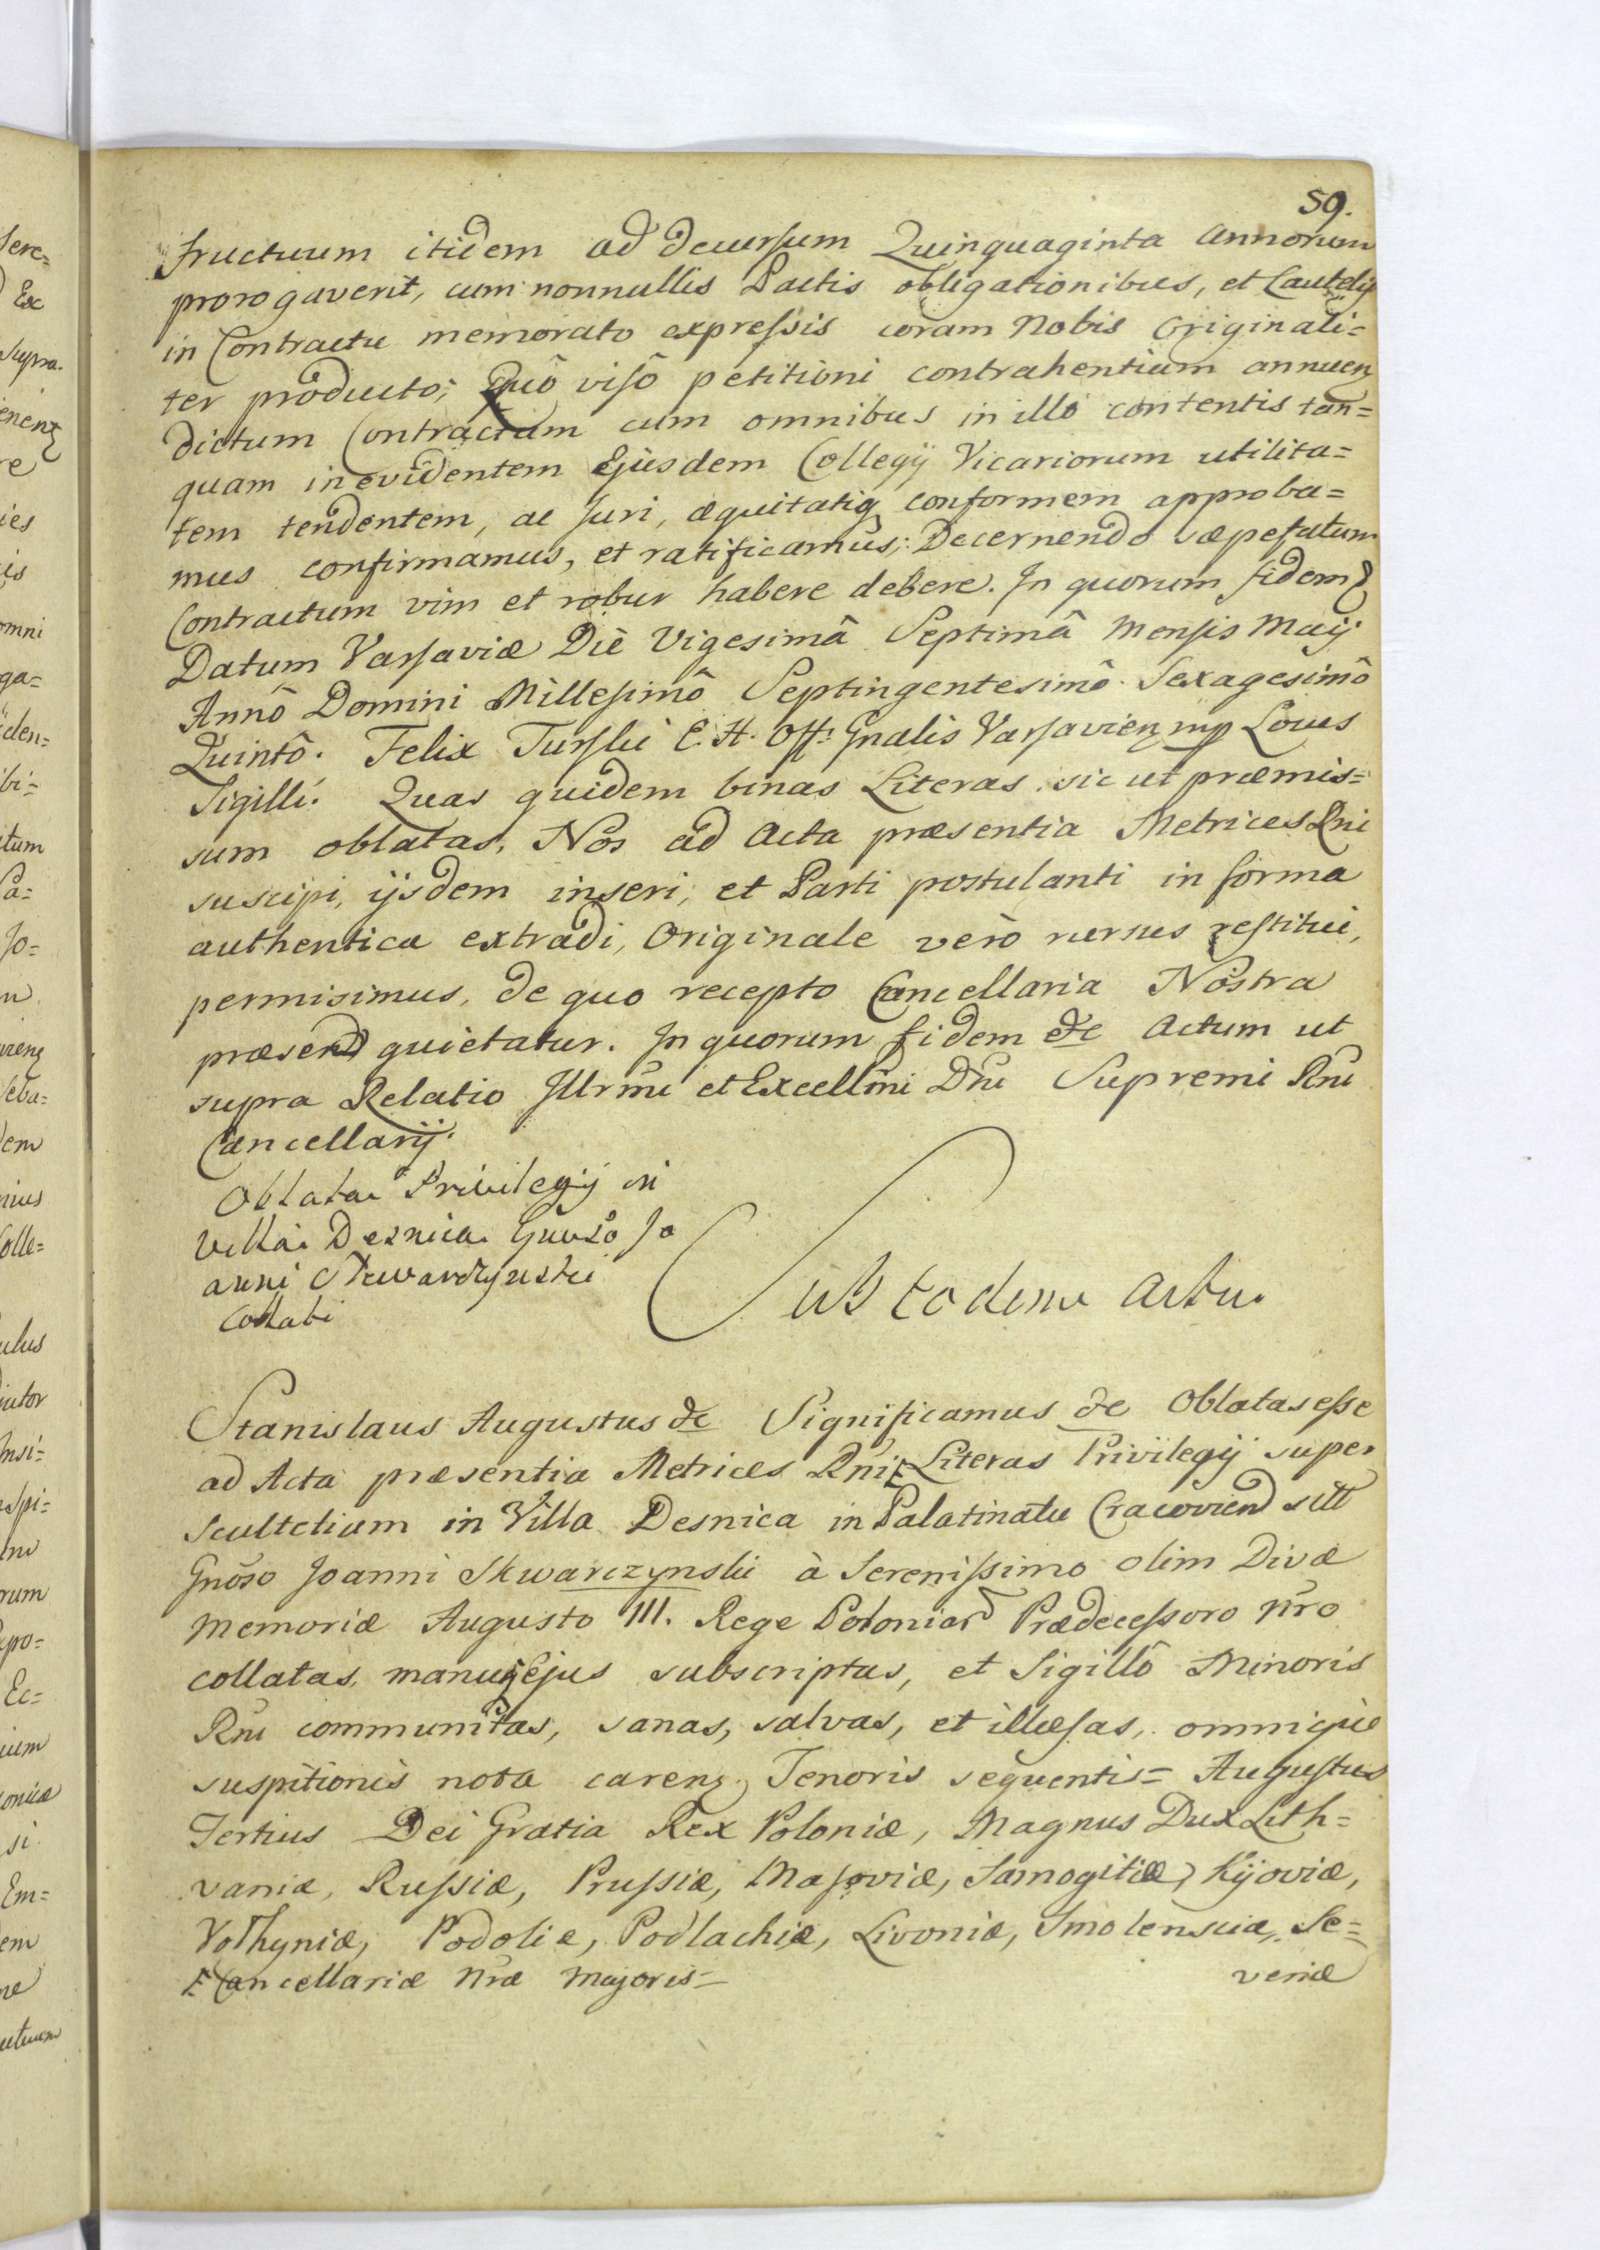 59.
fructuum itidem ad decursum Quinquaginta Annorum
prorogaverit, cum nonnullis Pactis obligationibus, et Cautelis
in Contractu memorato expressis coram Nobis Originali=
ter producto; Quô visô petitioni contrahentium annuen
dictum Contractum cum omnibus in illo contentis tan=
quam in evidentem Ejusdem Collegij Vicariorum utilita=
tem tendentem, ac Juri, æquitatiq conformem approba=
mus confirmamus, et ratificamus; Decernendo sæpefatum
Contractum vim et robur habere debere. In quorum fidem
Datum Varsaviæ Die Vigesimâ Septimâ Mensis Maij
Annô Domini Millesimô Septingentesimô Sexagesimô
Quintô. Felix Turski E. H. Off: Gnalis Varsavien mp Locus
Sigilli. Quas quidem binas Literas sic ut præmis=
sum oblatas, Nos ad Acta præsentia Metrices Rni
suscipi, ijsdem inseri, et Parti postulanti in forma
authentica extradi, Originale verò rursus restitui,
permisimus, de quo recepto Cancellaria Nostra
præsend quietatur. In quorum fidem &c Actum ut
supra Relatio Illrmi et Excellmi Dni Supremi Rni
Cancellarij.
Oblata Privilegij in
Villa Desnica Gnoso Jo
anni Skwarczynski
Collati
Sub Eodem Actu.
Stanislaus Augustus &c Significamus &c Oblatas esse
ad Acta præsentia Metrices Rni Literas Privilegij super
Scultetiam in Villa Desnica in Palatinatu Cracovien sitt
Gnoso Joanni Skwarczynski à Serenissimo olim Divæ
Memoriæ Augusto III. Rege Poloniar Prædecessoro Nro
collatas, manuq Ejus subscriptas, et Sigillô Minoris
Rni communitas, sanas, salvas, et illæsas, omnique
suspitionis nota caren Tenoris sequentis= Augustus
Tertius Dei Gratia Rex Poloniæ, Magnus Dux Lith=
vaniæ, Russiæ, Prussiæ, Masoviæ, Samogitiæ, Kijoviæ,
Volhyniæ, Podoliæ, Podlachiæ, Livoniæ, Smolensciæ, Se=
Cancellariæ Nræ Majoris= veriæ